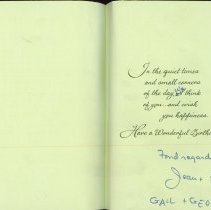 In the quiet times
and small corners
of the day, we think
of you...and wish
you happiness.
Have a Wonderful Birthd
Fond regard
Jean +
GAIL + GEO